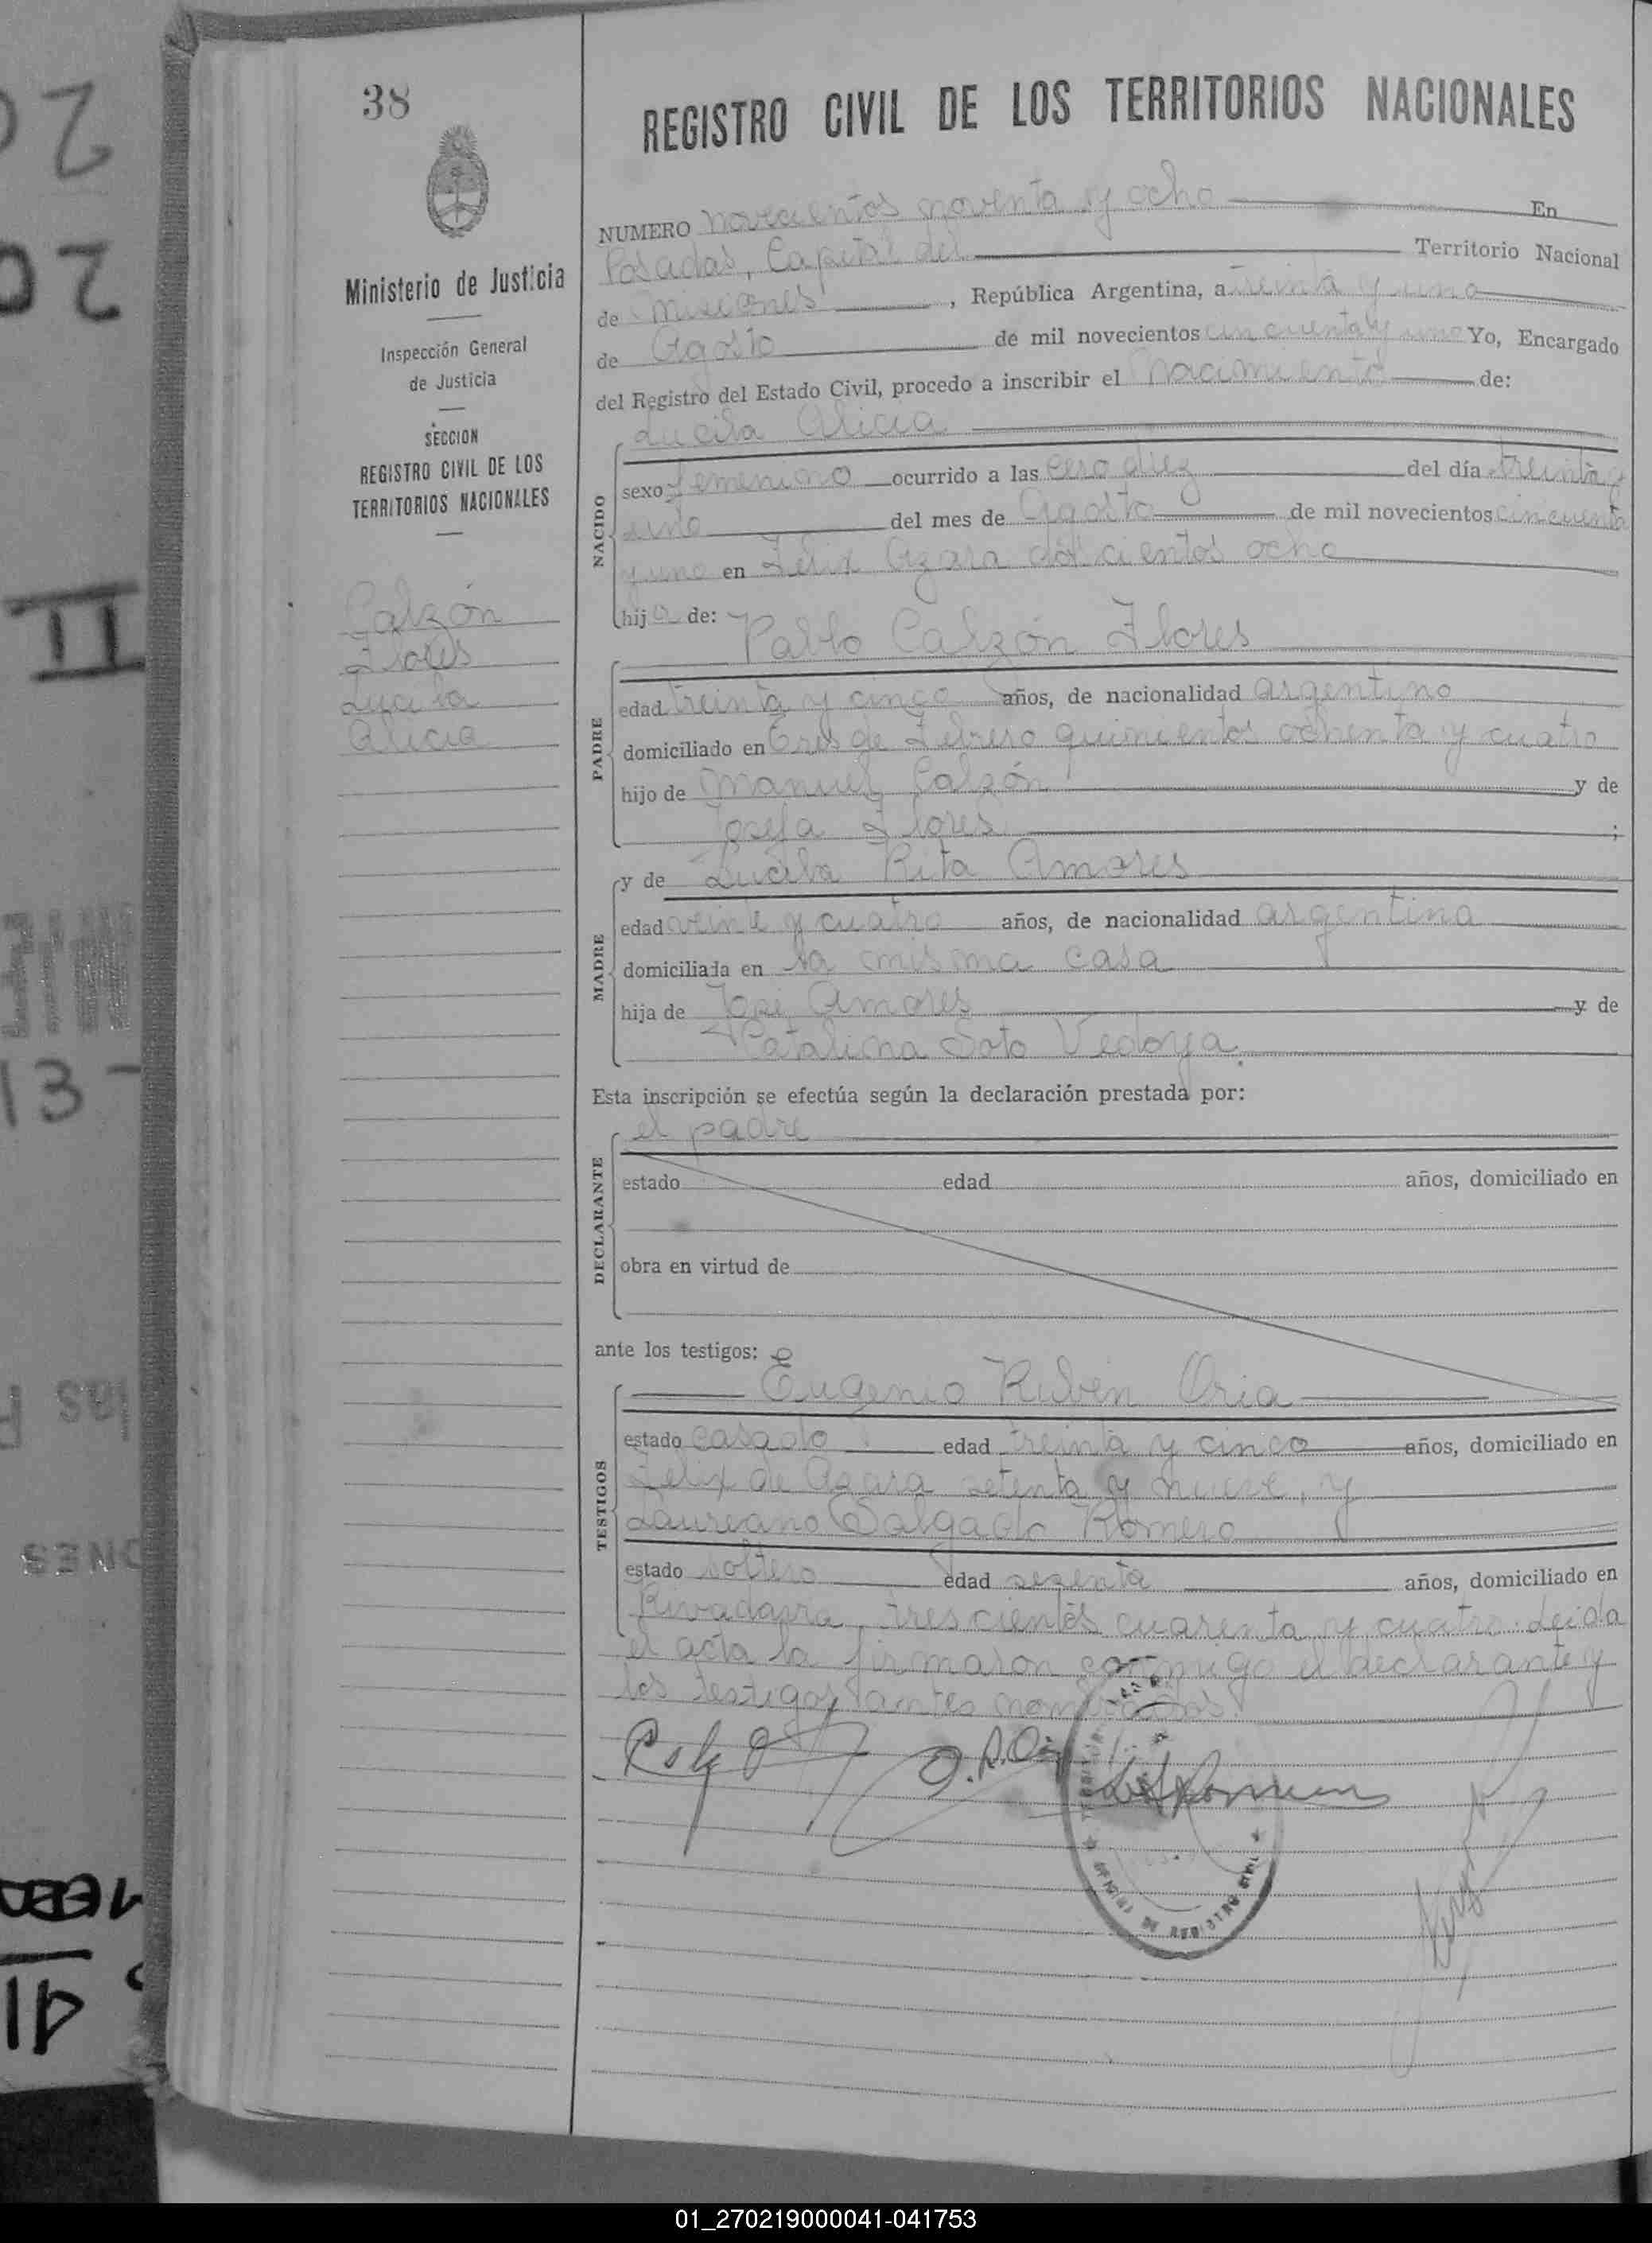 38
REGISTRO CIVIL DE LOS TERRITORIOS NACIONALES
Ministerio de Justicia
Inspección General
de Justicia
SECCION
REGISTRO CIVIL DE LOS
TERRITORIOS NACIONALES
Calzón
Flores
Lucila
Alicia
NUMERO novecientos noventa y ocho En
Posadas, Capital del Territorio Nacional
de Misiones, República Argentina, a treinta y uno
de Agosto de mil novecientos cincuenta y uno Yo, Encargado
del Registro del Estado Civil, procedo a inscribir el Nacimiento de:
Lucila Alicia
NACIDO
sexo femenino ocurrido a las cero diez del día treinta y
uno del mes de Agosto de mil novecientos cincuenta
y uno en Felix Azara doscientos ocho
hija de:
Pablo Calzón Flores
PADRE
edad treinta y cinco años, de nacionalidad argentino
domiciliado en Tres de Febrero quinientos ochenta y cuatro
hijo de Manuel Calzón y de
Josefa Flores ;
y de Lucila Rita Amores
MADRE
edad veinte y cuatro años, de nacionalidad argentina
domiciliada en la misma casa
hija de José Amores y de
Catalina Soto Vedoya.
Esta inscripción se efectúa según la declaración prestada por:
el padre
DECLARANTE
estado edad años, domiciliado en
obra en virtud de
ante los testigos:
Eugenio Rubén Oria
TESTIGOS
estado casado edad treinta y cinco años, domiciliado en
Felix de Azara setenta y nueve, y
Laureano Salgado Romero
estado soltero edad sesenta años, domiciliado en
Rivadavia trescientos cuarenta y cuatro. Leida
el acta la firmaron conmigo el declarante y
los testigos antes nombrados.
OFICINA DE REGISTRO CIVIL
01_270219000041-041753